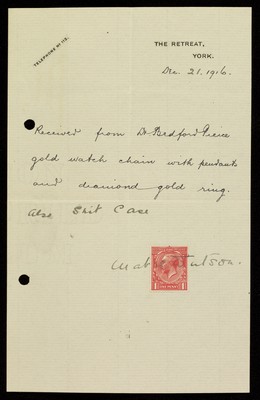 TELEPHONE Nº 112.
THE RETREAT,
YORK.
Dec. 21. 1916.
Received from Dr Bedford Pierce
gold watch chain with pendants
and diamond gold ring.
Also Suit Case